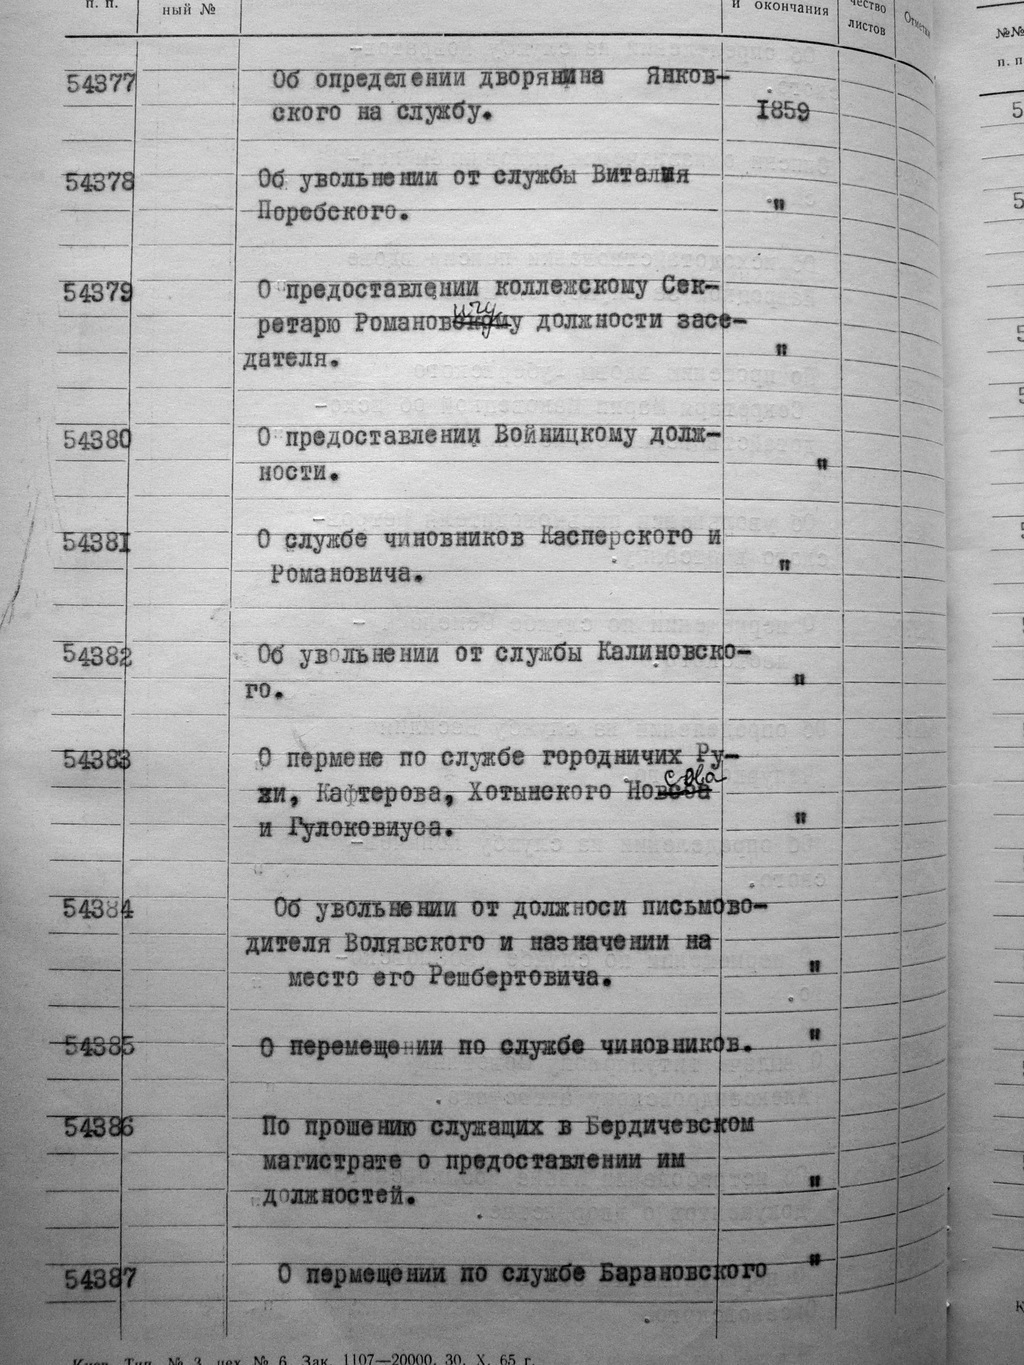 п. п.
ный №
и окончания
чество
листов
Отметки
№№
п. п
54377 Об определении дворянина Янков-
ского на службу. 1859
54378 Об увольнении от службы Виталия
Поребского. "
54379 О предоставлении коллежскому Сек-
ичу
ретарю Романовскому должности засе-
дателя. "
54380 О предоставлении Войницкому долж-
ности. "
54381 О службе чиновников Касперского и
Романовича. "
54382 Об увольнении от службы Калиновско-
го. "
54383 О пермене по службе городничих Ру-
жи, Кафтерова, Хотынского
и Гулоковиуса. "
54384 Об увольнении от должноси письмово-
дителя Волявского и назначении на
место его Решбертовича. "
54385 О перемещении по службе чиновников. "
54386 По прошению служащих в Бердичевском
магистрате о предоставлении им
должностей. "
54387 О пермещении по службе Барановского "
Киев. Тип. № 3, цех № 6. Зак. 1107—20000. 30. X. 65 г.